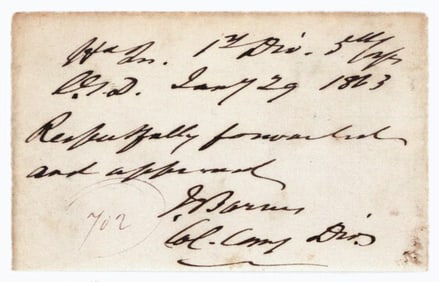 Hd Qrs. 1st Div. 5th Corps
Jany 29 1863
Respectfully forwarded
and approved
J Barnes
Col. Comg Div.
702